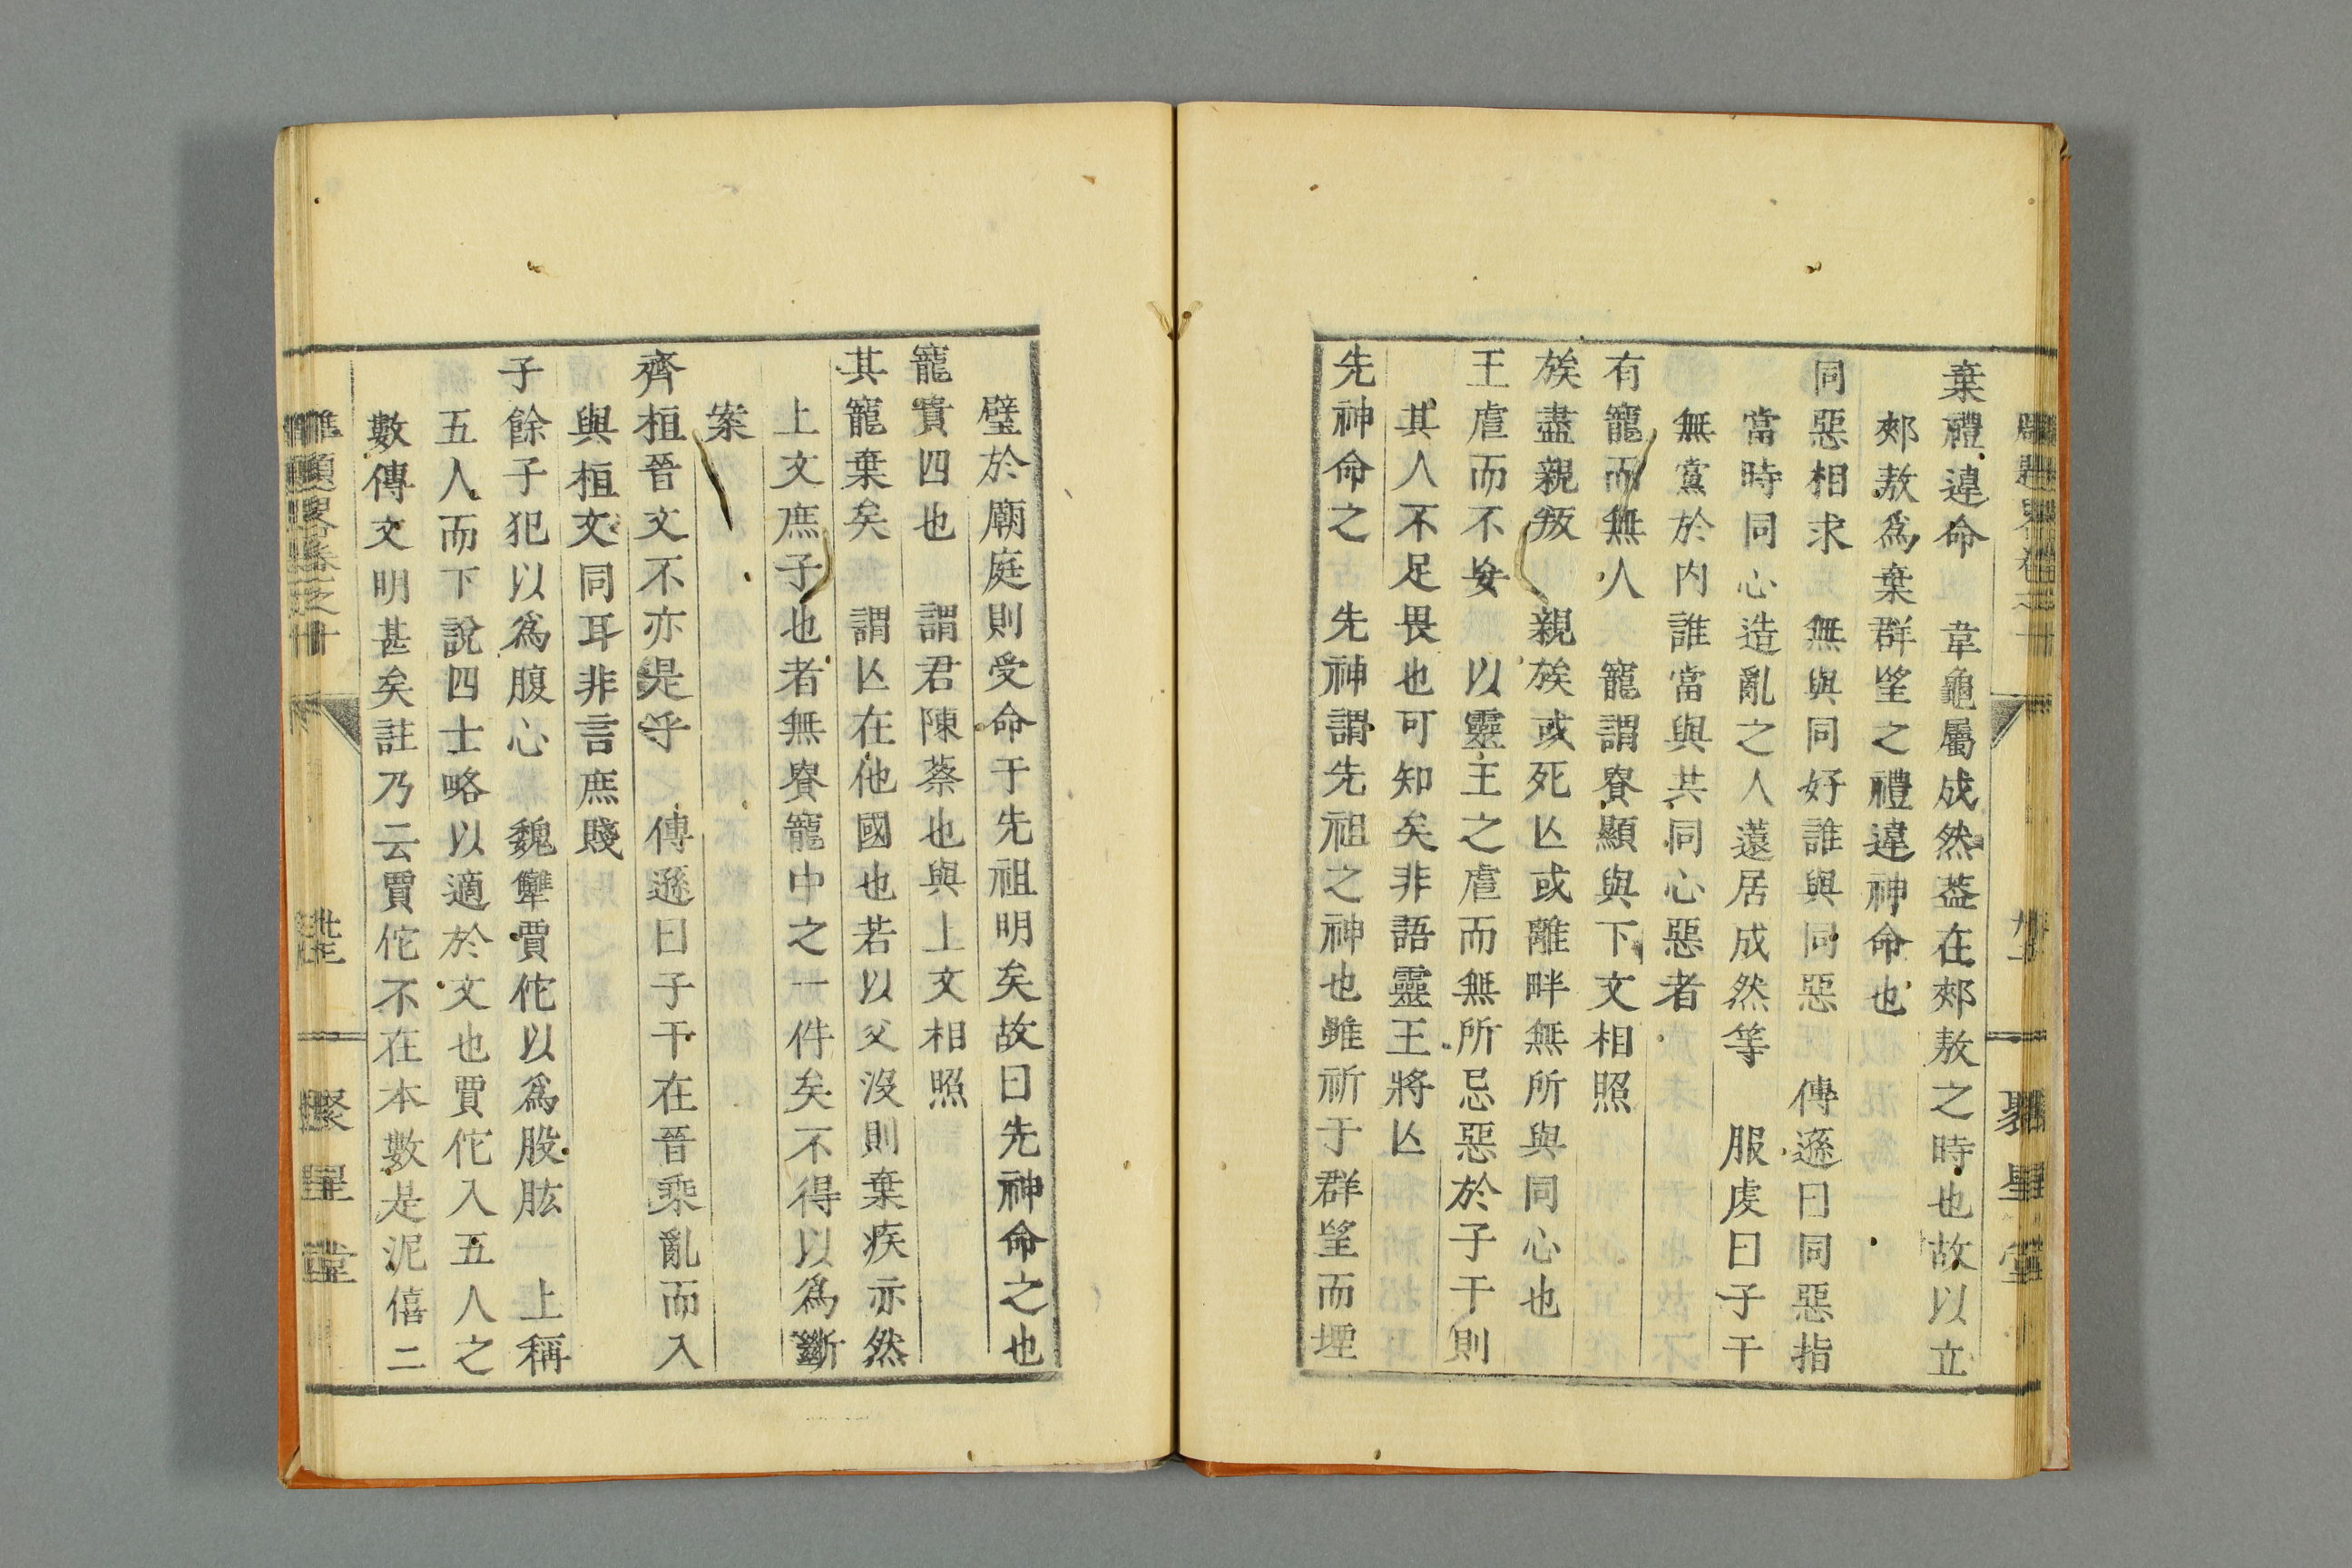 棄禮違命　韋龜屬成然葢在郟敖之時也故以立
郟敖爲棄群望之禮違神命也
同惡相求　無與同好誰與同惡　傳遜曰同惡指
當時同心造亂之人薳居成然等　服虔曰子干
無黨於内誰當與共同心惡者
有寵而無人　寵謂貴顯與下文相照
族盡親叛　親族或死亾或離畔無所與同心也
王虐而不　以靈王之虐而無所忌惡於子干則
其人不足畏也可知矣非語靈王將亾
先神命之　先神謂先祖之神也雖祈于群望而埋
璧於廟庭則受命于先祖明矣故曰先神命之也
寵貴四也　謂君陳蔡也與上文相照
其寵棄矣　謂亾在他國也若以父沒則棄疾亦然
上文庶子也者無貴寵中之一件矣不得以爲斷
案
齊桓晉文不亦是乎　傳遜曰子干在晉乘亂而入
與桓文同耳非言庶賤
子餘子犯以爲腹心　魏犫賈佗以爲股肱　上稱
五人而下說四士略以適於文也賈佗入五人之
數傳文明甚矣註乃云賈佗不在本數是泥僖二
聚星堂